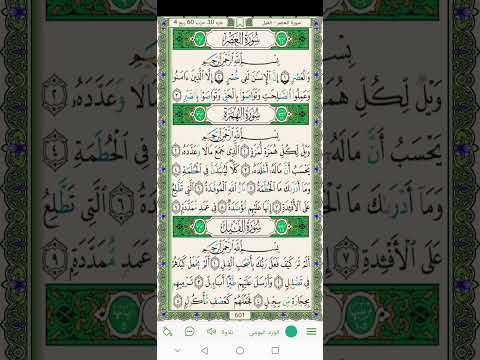 سورة العصر - الفيل جزء 30 حزب 60 ربع 4
سُورَةُ العَصْرِ
بِسْمِ ٱللَّهِ ٱلرَّحْمَٰنِ ٱلرَّحِيمِ
وَٱلْعَصْرِ ١ إِنَّ ٱلْإِنسَٰنَ لَفِى خُسْرٍ ٢ إِلَّا ٱلَّذِينَ ءَامَنُوا۟
وَعَمِلُوا۟ ٱلصَّٰلِحَٰتِ وَتَوَاصَوْا۟ بِٱلْحَقِّ وَتَوَاصَوْا۟ بِٱلصَّبْرِ ٣
سُورَةُ الهُمَزَةِ
بِسْمِ ٱللَّهِ ٱلرَّحْمَٰنِ ٱلرَّحِيمِ
وَيْلٌ لِّكُلِّ هُمَزَةٍ لُّمَزَةٍ ١ ٱلَّذِى جَمَعَ مَالًا وَعَدَّدَهُۥ ٢
يَحْسَبُ أَنَّ مَالَهُۥٓ أَخْلَدَهُۥ ٣ كَلَّا لَيُنۢبَذَنَّ فِى ٱلْحُطَمَةِ ٤
وَمَآ أَدْرَىٰكَ مَا ٱلْحُطَمَةُ ٥ نَارُ ٱللَّهِ ٱلْمُوقَدَةُ ٦ ٱلَّتِى تَطَّلِعُ
عَلَى ٱلْأَفْـِٔدَةِ ٧ إِنَّهَا عَلَيْهِم مُّؤْصَدَةٌ ٨ فِى عَمَدٍ مُّمَدَّدَةٍ ٩
سُورَةُ الفِيلِ
بِسْمِ ٱللَّهِ ٱلرَّحْمَٰنِ ٱلرَّحِيمِ
أَلَمْ تَرَ كَيْفَ فَعَلَ رَبُّكَ بِأَصْحَٰبِ ٱلْفِيلِ ١ أَلَمْ يَجْعَلْ كَيْدَهُمْ
فِى تَضْلِيلٍ ٢ وَأَرْسَلَ عَلَيْهِمْ طَيْرًا أَبَابِيلَ ٣ تَرْمِيهِم
بِحِجَارَةٍ مِّن سِجِّيلٍ ٤ فَجَعَلَهُمْ كَعَصْفٍ مَّأْكُولٍۭ ٥
601
الورد اليومي تلاوة